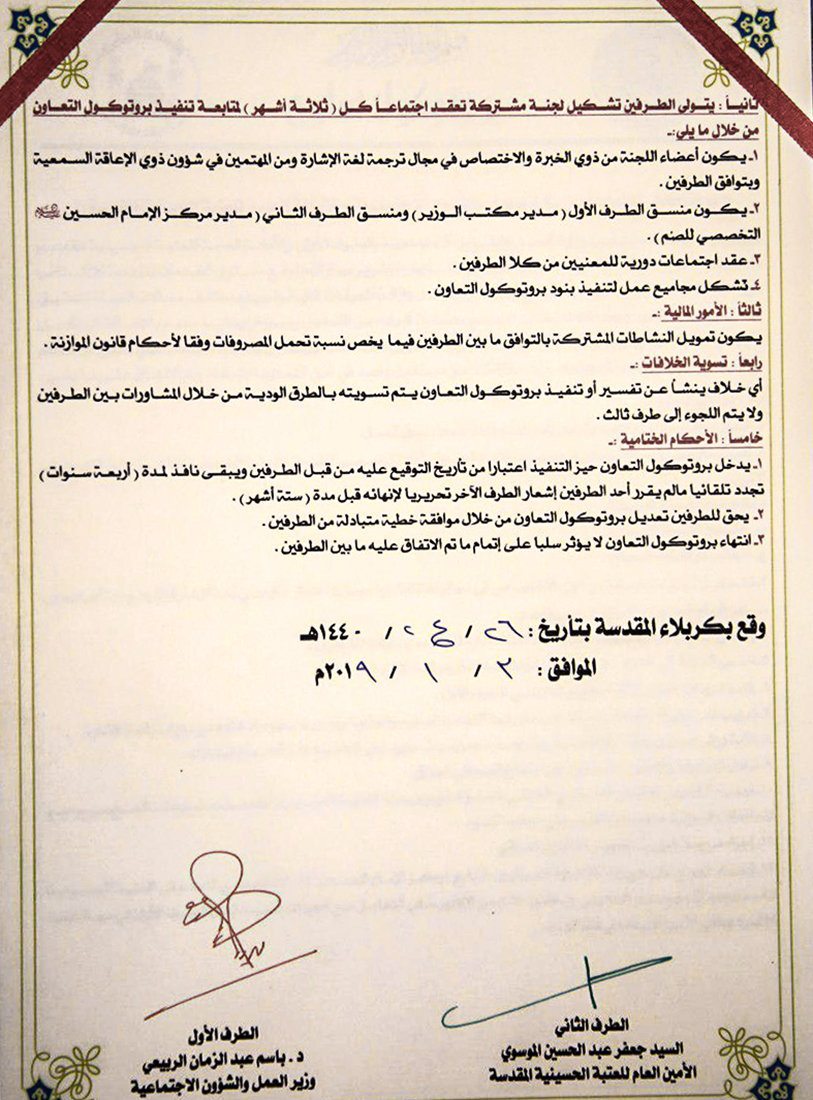 ثانياً : يتولى الطرفين تشكيل لجنة مشتركة تعقد اجتماعاً كل ( ثلاثة أشهر ) لمتابعة تنفيذ بروتوكول التعاون
من خلال ما يلي:ـ
١ـ يكون أعضاء اللجنة من ذوي الخبرة والاختصاص في مجال ترجمة لغة الإشارة ومن المهتمين في شؤون ذوي الإعاقة السمعية
وبتوافق الطرفين .
٢ـ يكون منسق الطرف الأول ( مدير مكتب الوزير ) ومنسق الطرف الثاني ( مدير مركز الإمام الحسين
التخصصي للصم ) .
٣ـ عقد اجتماعات دورية للمعنيين من كلا الطرفين .
٤ـ تشكل مجاميع عمل لتنفيذ بنود بروتوكول التعاون .
ثالثاً : الأمور المالية :ـ
يكون تمويل النشاطات المشتركة بالتوافق ما بين الطرفين فيما يخص نسبة تحمل المصروفات وفقا لأحكام قانون الموازنة .
رابعاً : تسوية الخلافات :ـ
أي خلاف ينشأ عن تفسير أو تنفيذ بروتوكول التعاون يتم تسويته بالطرق الودية من خلال المشاورات بين الطرفين
ولا يتم اللجوء إلى طرف ثالث .
خامساً : الأحكام الختامية :ـ
١ـ يدخل بروتوكول التعاون حيز التنفيذ اعتبارا من تأريخ التوقيع عليه من قبل الطرفين ويبقى نافذ لمدة ( أربعة سنوات )
تجدد تلقائيا مالم يقرر أحد الطرفين إشعار الطرف الآخر تحريريا لإنهائه قبل مدة ( ستة أشهر ) .
٢ـ يحق للطرفين تعديل بروتوكول التعاون من خلال موافقة خطية متبادلة من الطرفين .
٣ـ انتهاء بروتوكول التعاون لا يؤثر سلبا على إتمام ما تم الاتفاق عليه ما بين الطرفين .
وقع بكربلاء المقدسة بتأريخ : ٢٦ / ع٢ / ١٤٤٠هـ
الموافق : ٢ / ١ / ٢٠١٩م
الطرف الثاني
السيد جعفر عبد الحسين الموسوي
الأمين العام للعتبة الحسينية المقدسة
الطرف الأول
د. باسم عبد الزمان الربيعي
وزير العمل والشؤون الاجتماعية